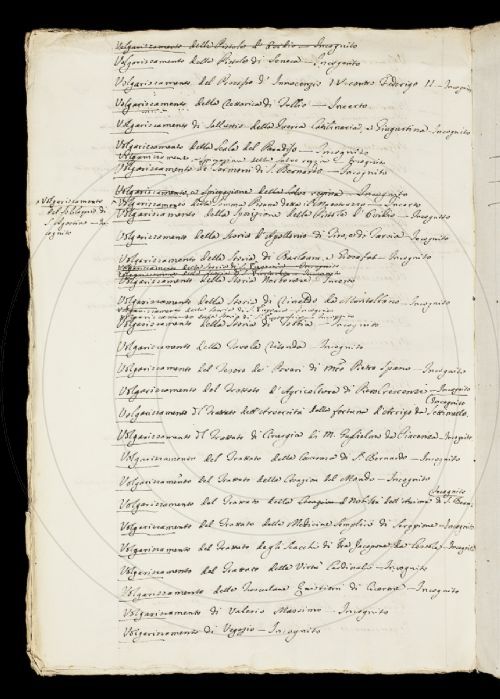 Volgarizzamento delle Pistole d'Ovidio — Incognito
Volgarizzamento delle Pistole di Seneca — Incognito
Volgarizzamento del Processo d'Innocenzio IV contro Federigo II — Incognito
Volgarizzamento della Rettorica di Tullio — Incerto
Volgarizzamento di Sallustio della Guerra Catilinaria, e Giugurtina Incognito
Volgarizzamento della Scala del Paradiso — Incognito
Volgarizzamento — Incognito
Volgarizzamento de' Sermoni di S. Bernardo — Incognito
Volgarizzamento, e Sposizione della Salve regina — Incognito
Volgarizzamento della Somma — Incerto
Volgarizzamento della Sposizione delle Pistole d'Ovidio — Incognito
Volgarizzamento del Soliloquio di S. Agostino — Incognito
Volgarizzamento della Storia d'Apollonio di Tiro, e di Tarsia Incognito
Volgarizzamento della Storia di Barlaam, e Giosafat — Incognito
Volgarizzamento della Storia di — Incognito
Volgarizzamento della Storia di
Volgarizzamento della Storia Nerbonese — Incerto
Volgarizzamento della Storia di Rinaldo da Montalbano — Incognito
Volgarizzamento della Storia di S. — Incognito
Volgarizzamento della Storia di S. — Incognito
Volgarizzamento della Storia di Tobbia — Incognito
Volgarizzamento della Tavola ritonda — Incognito
Volgarizzamento del Tesoro de' Poveri di Mro Pietro Spano — Incognito
Volgarizzamento del Trattato d'Agricoltura di Pier Crescenzi — Incognito
Volgarizzamento Il Trattato dell'Avversità della fortuna d'Arrigo da Settimello. Incognito
Volgarizzamento Il Trattato di Cirugia di M. Guglielmo da Piacenza — Incognito
Volgarizzamento del Trattato della Coscienza di S. Bernardo — Incognito
Volgarizzamento del Trattato dello del Mondo — Incognito
Volgarizzamento del Trattato della Nobiltà dell'Anima di S. Bern. Incognito
Volgarizzamento del Trattato delle Medicine semplici di Serapione — Incognito
Volgarizzamento del Trattato degli Scacchi di Fra Jacopo da Cessole — Incognito
Volgarizzamento del Trattato delle Virtù Cardinali — Incognito
Volgarizzamento delle Tusculane Quistioni di Cicerone — Incognito
Volgarizzamento di Valerio Massimo — Incognito
Volgarizzamento di Vegezio — Incognito